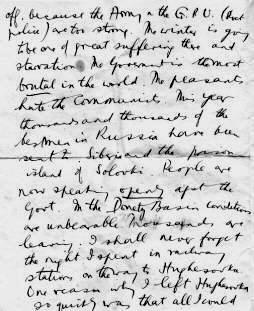 off, because the Army & the G.P.U. (Secret
Police) are too strong. The winter is going
to be one of great suffering there and
starvation. The Government is the most
brutal in the world. The peasants
hate the Communists. This year
thousands and thousands of the
best men in Russia have been
sent to Siberia and the prison
island of Solovki. People are
now speaking openly agst the
Govt. In the Donetz Basin conditions
are unbearable. Thousands are
leaving. I shall never forget
the night I spent in a railway
station on the way to Hughesovka.
One reason why I left Hughesovka
so quickly was that all I could